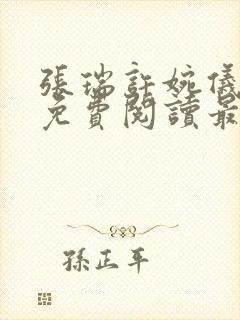 張瑞許婉儀
免費閱讀最
孫正平